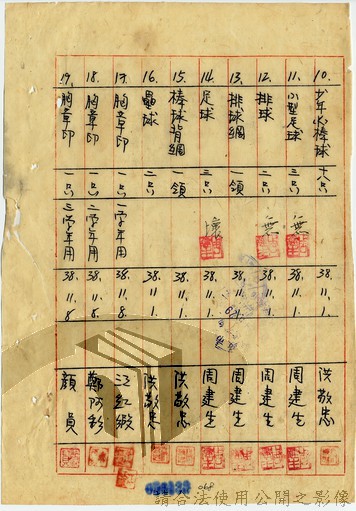 10. 少年水棒球 六只 38.11.1. 洪敬忠
11. 小型足球 二只 無 38.11.1. 周建生
12. 排球 二只 無 38.11.1. 周建生
13. 排球網 一領 38.11.1. 周建生
14. 足球 三只 壞 38.11.1. 周建生
15. 棒球背網 一領 38.11.1. 洪敬忠
16. 壘球 二只 38.11.1. 洪敬忠
17. 胸章印 一只 一學年用 38.11.8. 江紅緞
18. 胸章印 一只 二學年用 38.11.8. 鄭阿
19. 胸章印 一只 三學年用 38.11.8. 顏員
068
請合法使用公開之影像